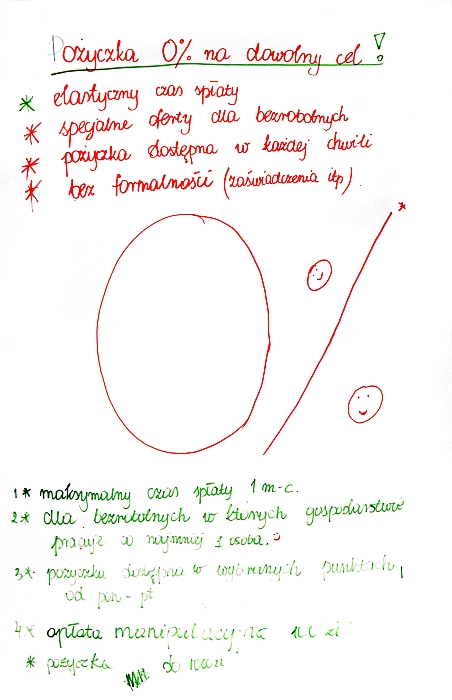 Pożyczka 0% na dowolny cel!
* elastyczny czas spłaty
* specjalne oferty dla bezrobotnych
* pożyczka dostępna w każdej chwili
* bez formalności (zaświadczenia itp)
*
1* maksymalny czas spłaty 1 m-c.
2* dla bezrobotnych w których gospodarstwie
pracuje co najmniej 1 osoba.
3* pożyczka dostępna w wybranych punktach,
od pon - pt
4* opłata manipulacyjna zł
* pożyczka do